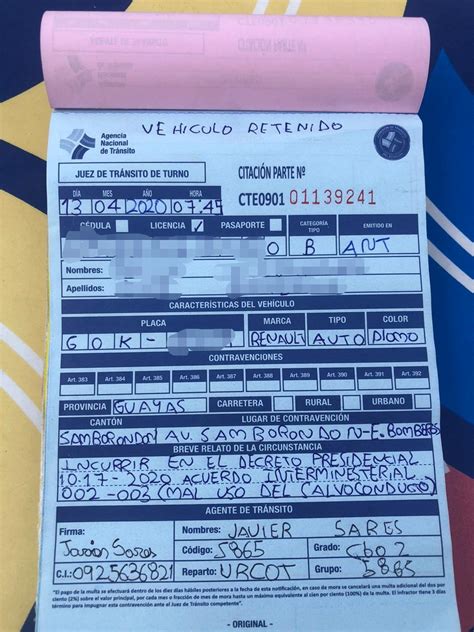 VEHICULO RETENIDO
Agencia
Nacional
de Tránsito
JUEZ DE TRÁNSITO DE TURNO
CITACIÓN PARTE Nº
DÍA MES AÑO HORA
13 04 2020 07:45
CTE0901 01139241
CÉDULA LICENCIA ✓ PASAPORTE CATEGORÍA TIPO EMITIDO EN
O B ANT
Nombres:
Apellidos:
CARACTERÍSTICAS DEL VEHÍCULO
PLACA MARCA TIPO COLOR
GOK- RENAULT AUTO PLOMO
CONTRAVENCIONES
Art. 383 Art. 384 Art. 385 Art. 386 Art. 387 Art. 388 Art. 389 Art. 390 Art. 391 Art. 392
PROVINCIA GUAYAS CARRETERA RURAL URBANO
CANTÓN LUGAR DE CONTRAVENCIÓN
SAMBORONDON AV. SAMBORONDO N-E. BOMBEROS
BREVE RELATO DE LA CIRCUNSTANCIA
INCURRIR EN EL DECRETO PRESIDENCIAL
10-17-2020 ACUERDO INTERMINESTERIAL
002-003 (MAL USO DEL CALVOCONDUCTO)
AGENTE DE TRÁNSITO
Firma: Nombres: JAVIER SARES
Código: 5865 Grado: Cbo 2
C.I.: 0925636821 Reparto: URCOT Grupo: 5865
"El pago de la multa se efectuará dentro de los diez días hábiles posteriores a la fecha de esta notificación, en caso de mora se cancelará una multa adicional del dos por
ciento (2%) sobre el valor principal, por cada mes o fracción de mes de mora hasta un máximo equivalente al cien por ciento (100%) de la multa. El infractor tiene 3 días
término para impugnar esta contravención ante el Juez de Tránsito competente".
- ORIGINAL -